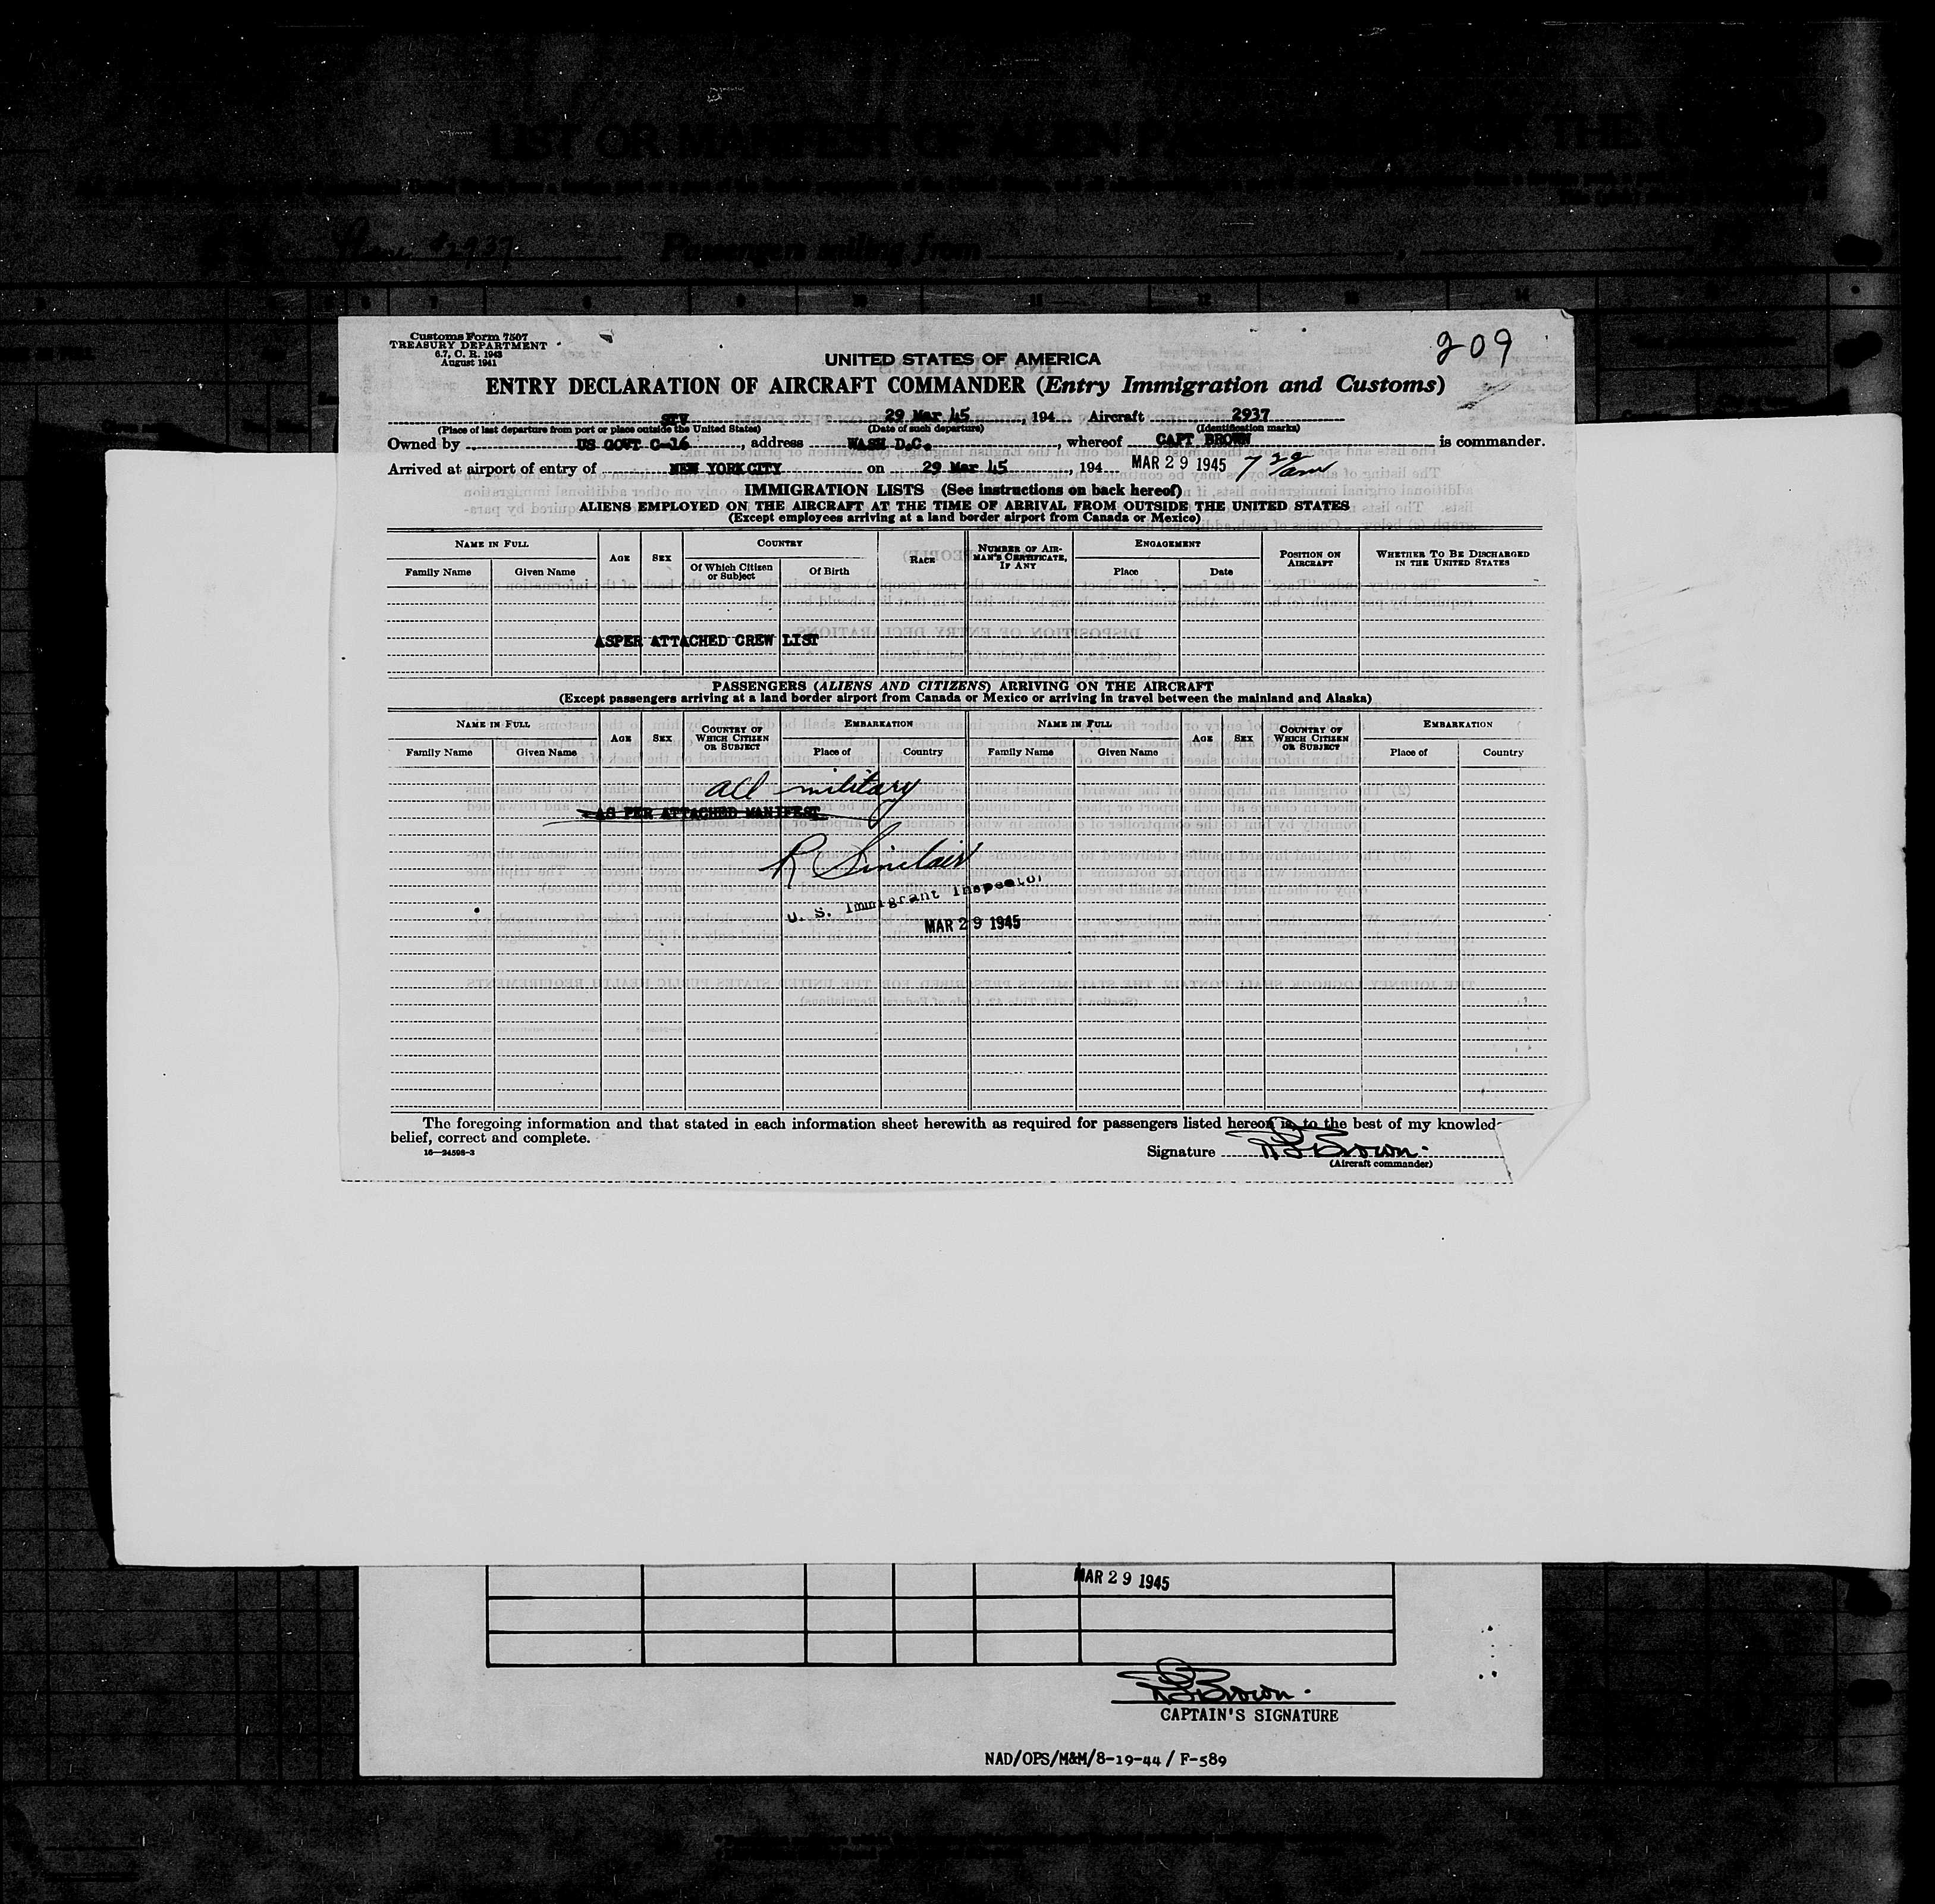 LIST OR MANIFEST OF ALIEN PASSENGERS FOR THE
Plane #2937 Passengers sailing from
Customs Form 7507
TREASURY DEPARTMENT
6.7, C. R. 1943
August 1941
209
UNITED STATES OF AMERICA
ENTRY DECLARATION OF AIRCRAFT COMMANDER (Entry Immigration and Customs)
STV 29 Mar 45, 194 Aircraft 2937
(Place of last departure from port or place outside the United States) (Date of such departure) (Identification marks)
Owned by US GOVT C-16, address WASH D.C., whereof CAPT BROWN is commander.
Arrived at airport of entry of NEW YORK CITY on 29 Mar 45, 194 MAR 29 1945 7 20 am
IMMIGRATION LISTS (See instructions on back hereof)
ALIENS EMPLOYED ON THE AIRCRAFT AT THE TIME OF ARRIVAL FROM OUTSIDE THE UNITED STATES
(Except employees arriving at a land border airport from Canada or Mexico)
NAME IN FULL AGE SEX COUNTRY RACE NUMBER OF AIRMAN'S CERTIFICATE, IF ANY ENGAGEMENT POSITION ON AIRCRAFT WHETHER TO BE DISCHARGED IN THE UNITED STATES
Family Name Given Name Of Which Citizen or Subject Of Birth Place Date
ASPER ATTACHED CREW LIST
PASSENGERS (ALIENS AND CITIZENS) ARRIVING ON THE AIRCRAFT
(Except passengers arriving at a land border airport from Canada or Mexico or arriving in travel between the mainland and Alaska)
NAME IN FULL AGE SEX COUNTRY OF WHICH CITIZEN OR SUBJECT EMBARKATION NAME IN FULL AGE SEX COUNTRY OF WHICH CITIZEN OR SUBJECT EMBARKATION
Family Name Given Name Place of Country Family Name Given Name Place of Country
all military
AS PER ATTACHED MANIFEST
R Sinclair
U. S. Immigrant Inspector
MAR 29 1945
The foregoing information and that stated in each information sheet herewith as required for passengers listed hereon is, to the best of my knowled
belief, correct and complete.
16—24598-3
Signature R S Brown
(Aircraft commander)
MAR 29 1945
R S Brown
CAPTAIN'S SIGNATURE
NAD/OPS/M&M/8-19-44 / F-589